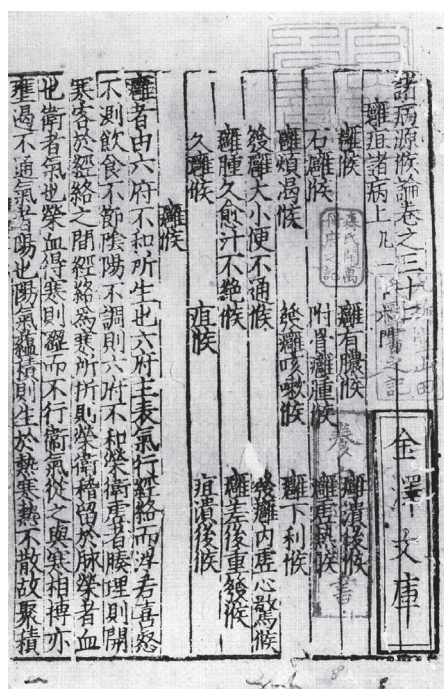 諸病源候論卷之三十
癰疽諸病上 凡一十六門
癰候 癰有膿候 癰潰後候
石癰候 附骨癰腫候 癰虛熱候
癰煩渴候 發癰咳嗽候 癰下利候
發癰大小便不通候 發癰内虛心驚候
癰腫久愈汁不絶候 癰差後重發候
久癰候 疽候 疽潰後候
癰候
癰者由六府不和所生也六府主表氣行經絡而浮若喜怒
不測飲食不節陰陽不調則六府不和榮衛虛者腠理則開
寒客於經絡之間經絡為寒所折則榮衛稽留於脉榮者血
也衛者氣也榮血得寒則澀而不行衛氣從之與寒相搏亦
壅遏不通氣者陽也陽氣蘊積則生於熱寒熱不散故聚積
金澤文庫
森氏開萬冊府之記